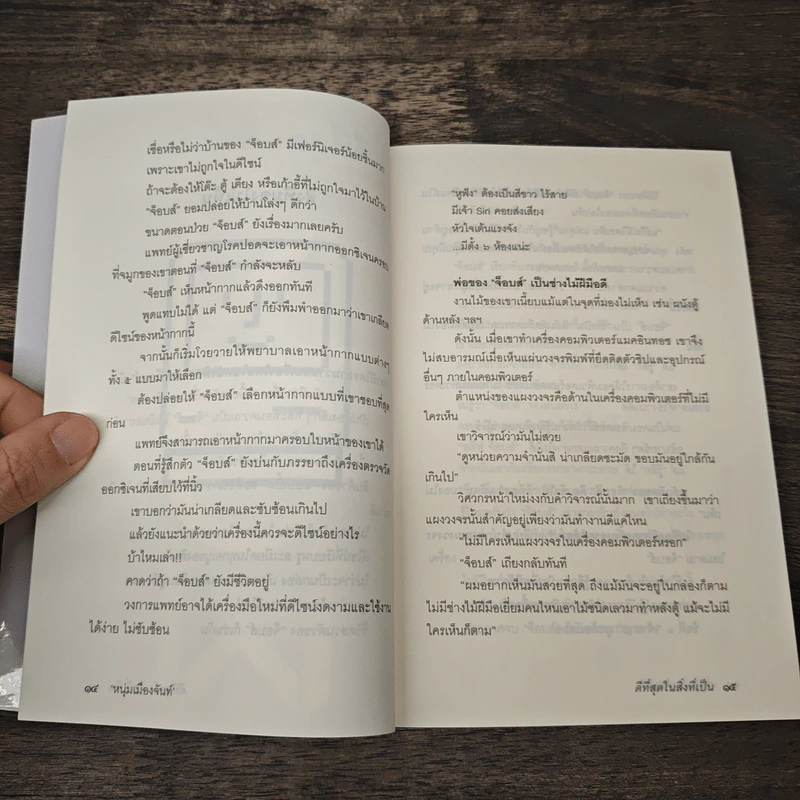 เชื่อหรือไม่ว่าบ้านของ "จ็อบส์" มีเฟอร์นิเจอร์น้อยชิ้นมาก
เพราะเขาไม่ถูกใจในดีไซน์
ถ้าจะต้องให้โต๊ะ ตู้ เตียง หรือเก้าอี้ที่ไม่ถูกใจมาไว้ในบ้าน
"จ็อบส์" ยอมปล่อยให้บ้านโล่งๆ ดีกว่า
ขนาดตอนป่วย "จ็อบส์" ยังเรื่องมากเลยครับ
แพทย์ผู้เชี่ยวชาญโรคปอดจะเอาหน้ากากออกซิเจนครอบ
ที่จมูกของเขาตอนที่ "จ็อบส์" กำลังจะหลับ
"จ็อบส์" เห็นหน้ากากแล้วดึงออกทันที
พูดแทบไม่ได้ แต่ "จ็อบส์" ก็ยังพึมพำออกมาว่าเขาเกลียด
ดีไซน์ของหน้ากากนี้
จากนั้นก็เริ่มโวยวายให้พยาบาลเอาหน้ากากแบบต่างๆ
ทั้ง ๕ แบบมาให้เลือก
ต้องปล่อยให้ "จ็อบส์" เลือกหน้ากากแบบที่เขาชอบที่สุด
ก่อน
แพทย์จึงสามารถเอาหน้ากากมาครอบใบหน้าของเขาได้
ตอนที่รู้สึกตัว "จ็อบส์" ยังบ่นกับภรรยาถึงเครื่องตรวจวัด
ออกซิเจนที่เสียบไว้ที่นิ้ว
เขาบอกว่ามันน่าเกลียดและซับซ้อนเกินไป
แล้วยังแนะนำด้วยว่าเครื่องนี้ควรจะดีไซน์อย่างไร
บ้าไหมเล่า!!
คาดว่าถ้า "จ็อบส์" ยังมีชีวิตอยู่
วงการแพทย์อาจได้เครื่องมือใหม่ที่ดีไซน์งดงามและใช้งาน
ได้ง่าย ไม่ซับซ้อน
๑๔ 'หนุ่มเมืองจันท์'
"หูฟัง" ต้องเป็นสีขาว ไร้สาย
มีเจ้า Siri คอยส่งเสียง
หัวใจเต้นแรงจัง
...มีตั้ง ๖ ห้องแน่ะ
พ่อของ "จ็อบส์" เป็นช่างไม้ฝีมือดี
งานไม้ของเขาเนี้ยบแม้แต่ในจุดที่มองไม่เห็น เช่น ผนังตู้
ด้านหลัง ฯลฯ
ดังนั้น เมื่อเขาทำเครื่องคอมพิวเตอร์แมคอินทอช เขาจึง
ไม่สบอารมณ์เมื่อเห็นแผ่นวงจรพิมพ์ที่ยึดติดตัวชิปและอุปกรณ์
อื่นๆ ภายในคอมพิวเตอร์
ตำแหน่งของแผงวงจรคือด้านในเครื่องคอมพิวเตอร์ที่ไม่มี
ใครเห็น
เขาวิจารณ์ว่ามันไม่สวย
"ดูหน่วยความจำนั่นสิ น่าเกลียดชะมัด ขอบมันอยู่ใกล้กัน
เกินไป"
วิศวกรหน้าใหม่งงกับคำวิจารณ์นั้นมาก เขาเถียงขึ้นมาว่า
แผงวงจรนั้นสำคัญอยู่เพียงว่ามันทำงานดีแค่ไหน
"ไม่มีใครเห็นแผงวงจรในเครื่องคอมพิวเตอร์หรอก"
"จ็อบส์" เถียงกลับทันที
"ผมอยากเห็นมันสวยที่สุด ถึงแม้มันจะอยู่ในกล่องก็ตาม
ไม่มีช่างไม้ฝีมือเยี่ยมคนไหนเอาไม้ชนิดเลวมาทำหลังตู้ แม้จะไม่มี
ใครเห็นก็ตาม"
ดีที่สุดในสิ่งที่เป็น ๑๕